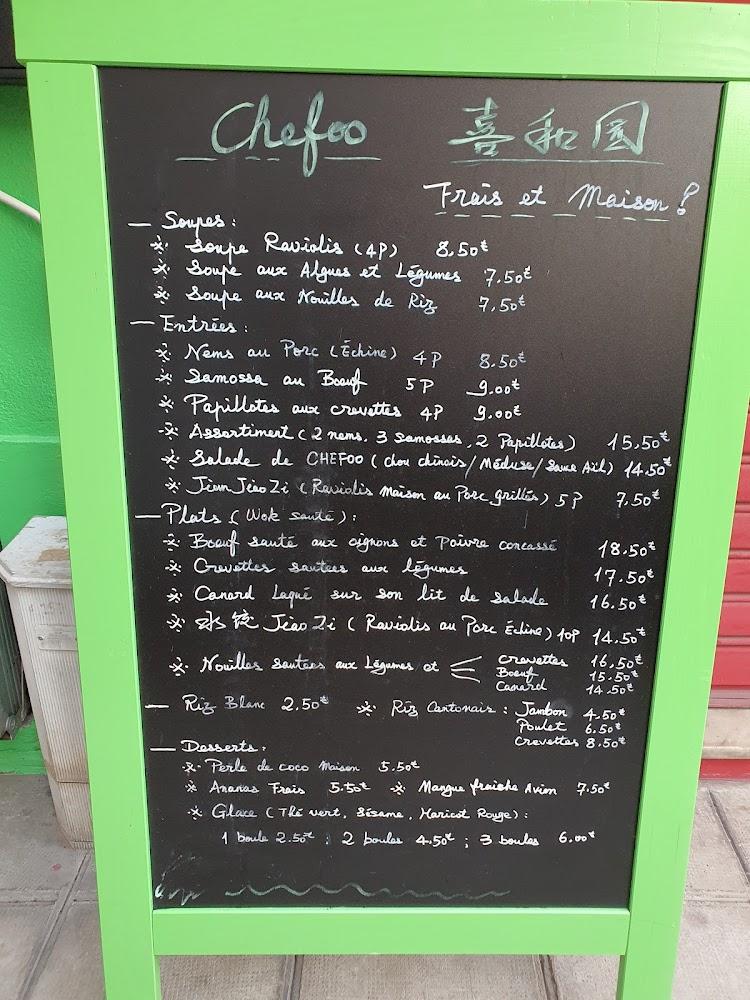 Chefoo 喜和园
Frais et Maison !
— Soupes :
※ Soupe Raviolis (4P) 8.50€
※ Soupe aux Algues et Légumes 7.50€
※ Soupe aux Nouilles de Riz 7.50€
— Entrées :
※ Nems au Porc (Échine) 4P 8.50€
※ Samossa au Boeuf 5P 9.00€
※ Papillotes aux crevettes 4P 9.00€
※ Assortiment (2 nems, 3 samossas, 2 Papillotes) 15,50€
※ Salade de CHEFOO (chou chinois/Méduse/Sauce Ail) 14.50€
※ Jian Jiao Zi (Raviolis maison au Porc grillés) 5P 7.50€
— Plats (Wok sauté) :
※ Boeuf sauté aux oignons et Poivre concassé 18.50€
※ Crevettes sautées aux légumes 17.50€
※ Canard Laqué sur son lit de salade 16.50€
※ 水饺 Jiao Zi (Raviolis au Porc Échine) 10P 14.50€
※ Nouilles sautées aux Légumes et crevettes 16,50€
Boeuf 15.50€
Canard 14.50€
— Riz Blanc 2.50€ ※ Riz Cantonais : Jambon 4.50€
Poulet 6.50€
crevettes 8.50€
— Desserts :
※ Perle de coco Maison 5.50€
※ Ananas Frais 5.50€ ※ Mangue fraiche Avion 7.50€
※ Glace (Thé vert, Sésame, Haricot Rouge) :
1 boule 2.50€ ; 2 boules 4.50€ ; 3 boules 6.00€